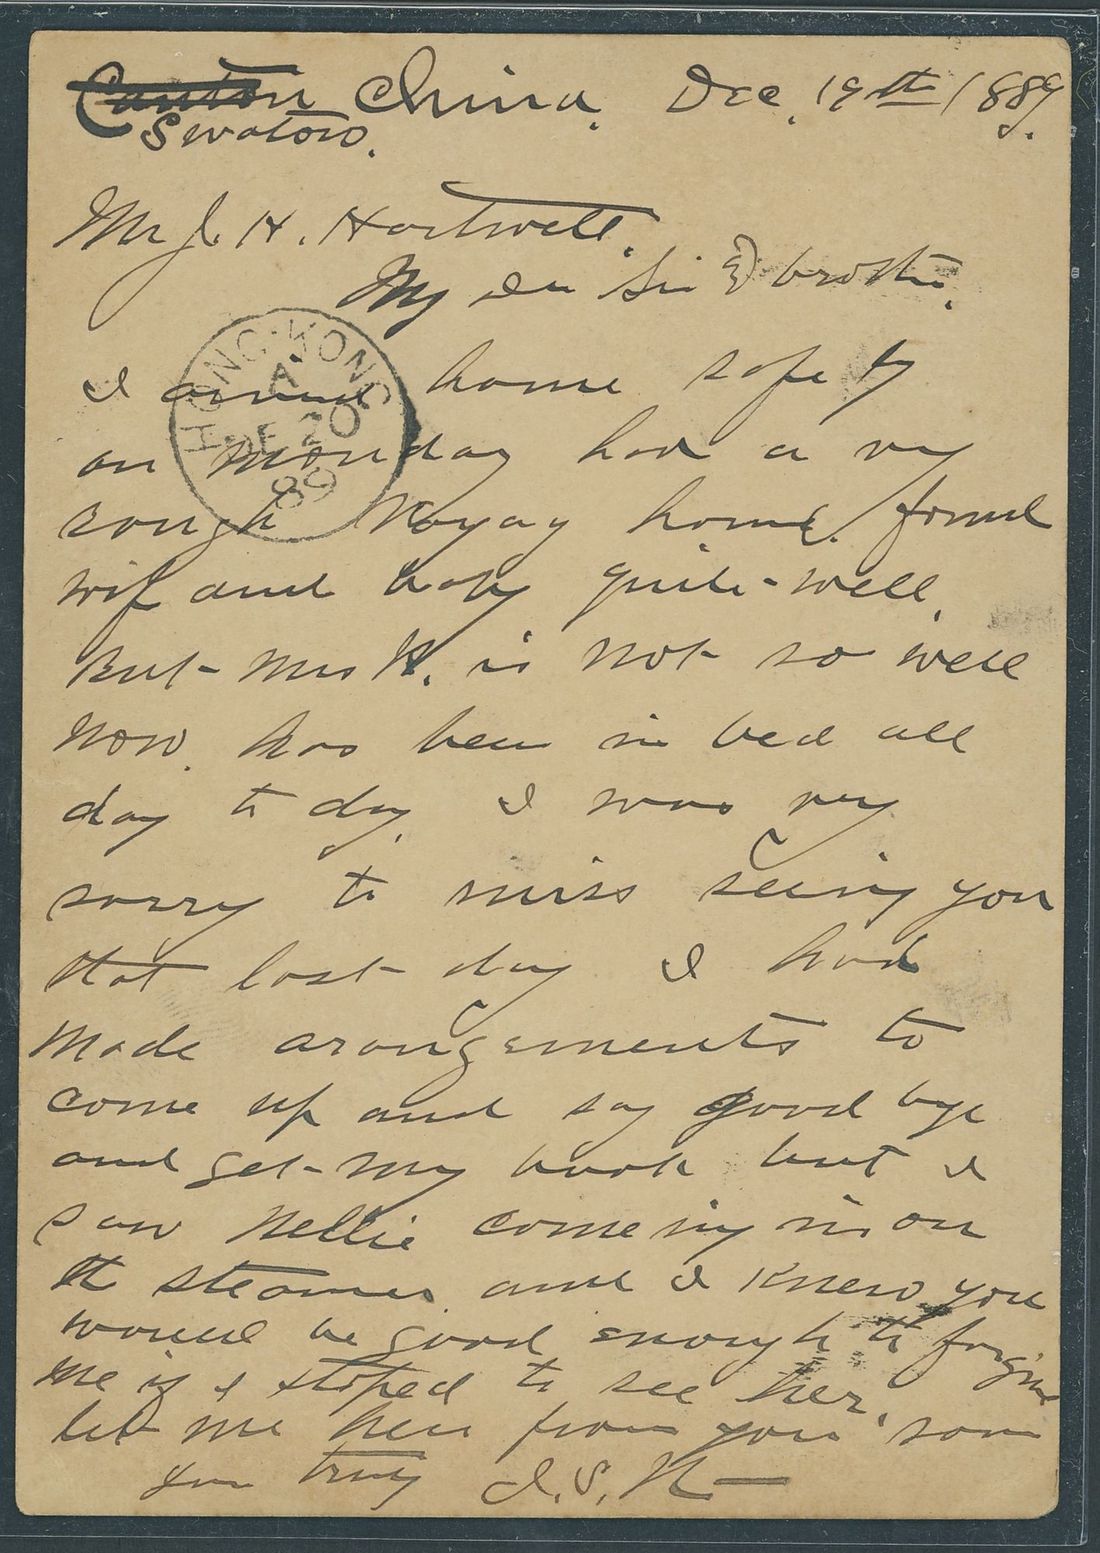 Canton China. Dec. 19th 1889.
Swatow.
Mr J. H. Hartwell.
My Dr Sir & brother.
HONG-KONG
A
DE 20
89
I arrived home safely
on monday had a very
rough Voyag home. found
wif and baby quite well.
But Mrs H. is not so well
now. has been in bed all
day to day I was very
sorry to miss seeing you
that last day I had
made arongements to
come up and say good bye
and get my book but I
saw Nellie comeing in on
the steamer and I knew you
would be good enough to forgive
me if I stoped to see her.
let me hear from you soon
your truly J. S.